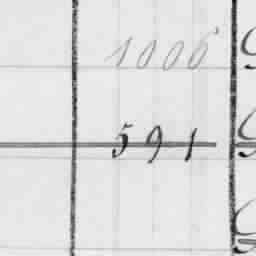 1006
591